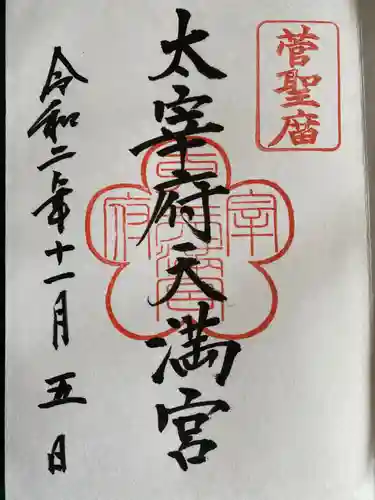 菅聖庿
太宰府天満宮
令和二年十一月五日